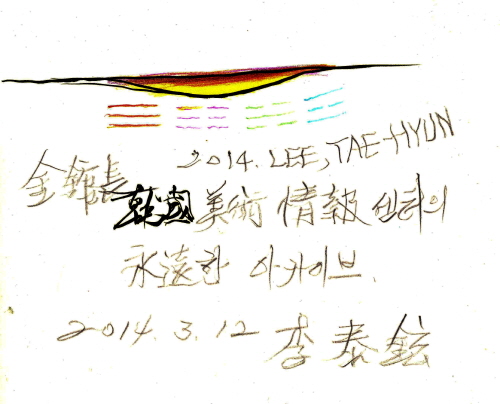 2014. LEE, TAE-HYUN
金館長
韓國美術情報센타의
永遠한 아카이브.
2014. 3. 12 李泰鉉